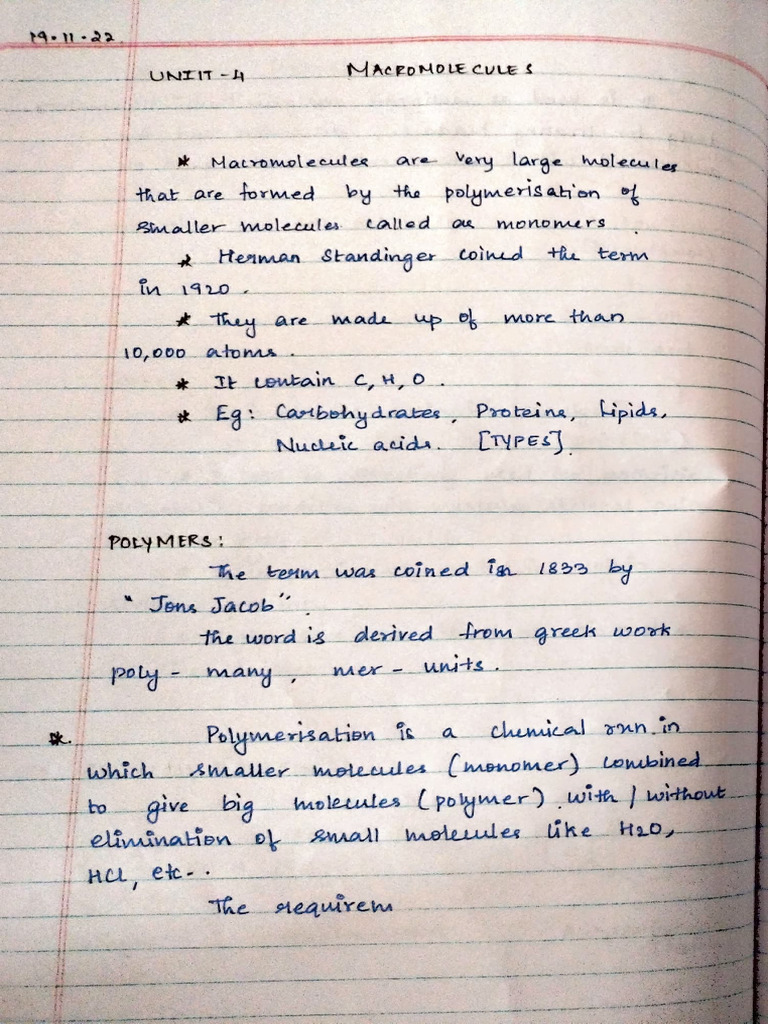 19.11.22
UNIT-4 MACROMOLECULES
* Macromolecules are very large molecules
that are formed by the polymerisation of
smaller molecules called as monomers.
* Herman Standinger coined the term
in 1920.
* They are made up of more than
10,000 atoms.
* It contain C, H, O.
* Eg: Carbohydrates, Proteins, Lipids,
Nucleic acids. [TYPES].
POLYMERS:
The term was coined in 1833 by
"Jons Jacob".
The word is derived from greek work
poly - many, mer - units.
*. Polymerisation is a chemical rxn. in
which smaller molecules (monomer) combined
to give big molecules (polymer) with / without
elimination of small molecules like H2O,
HCl, etc..
The requirem